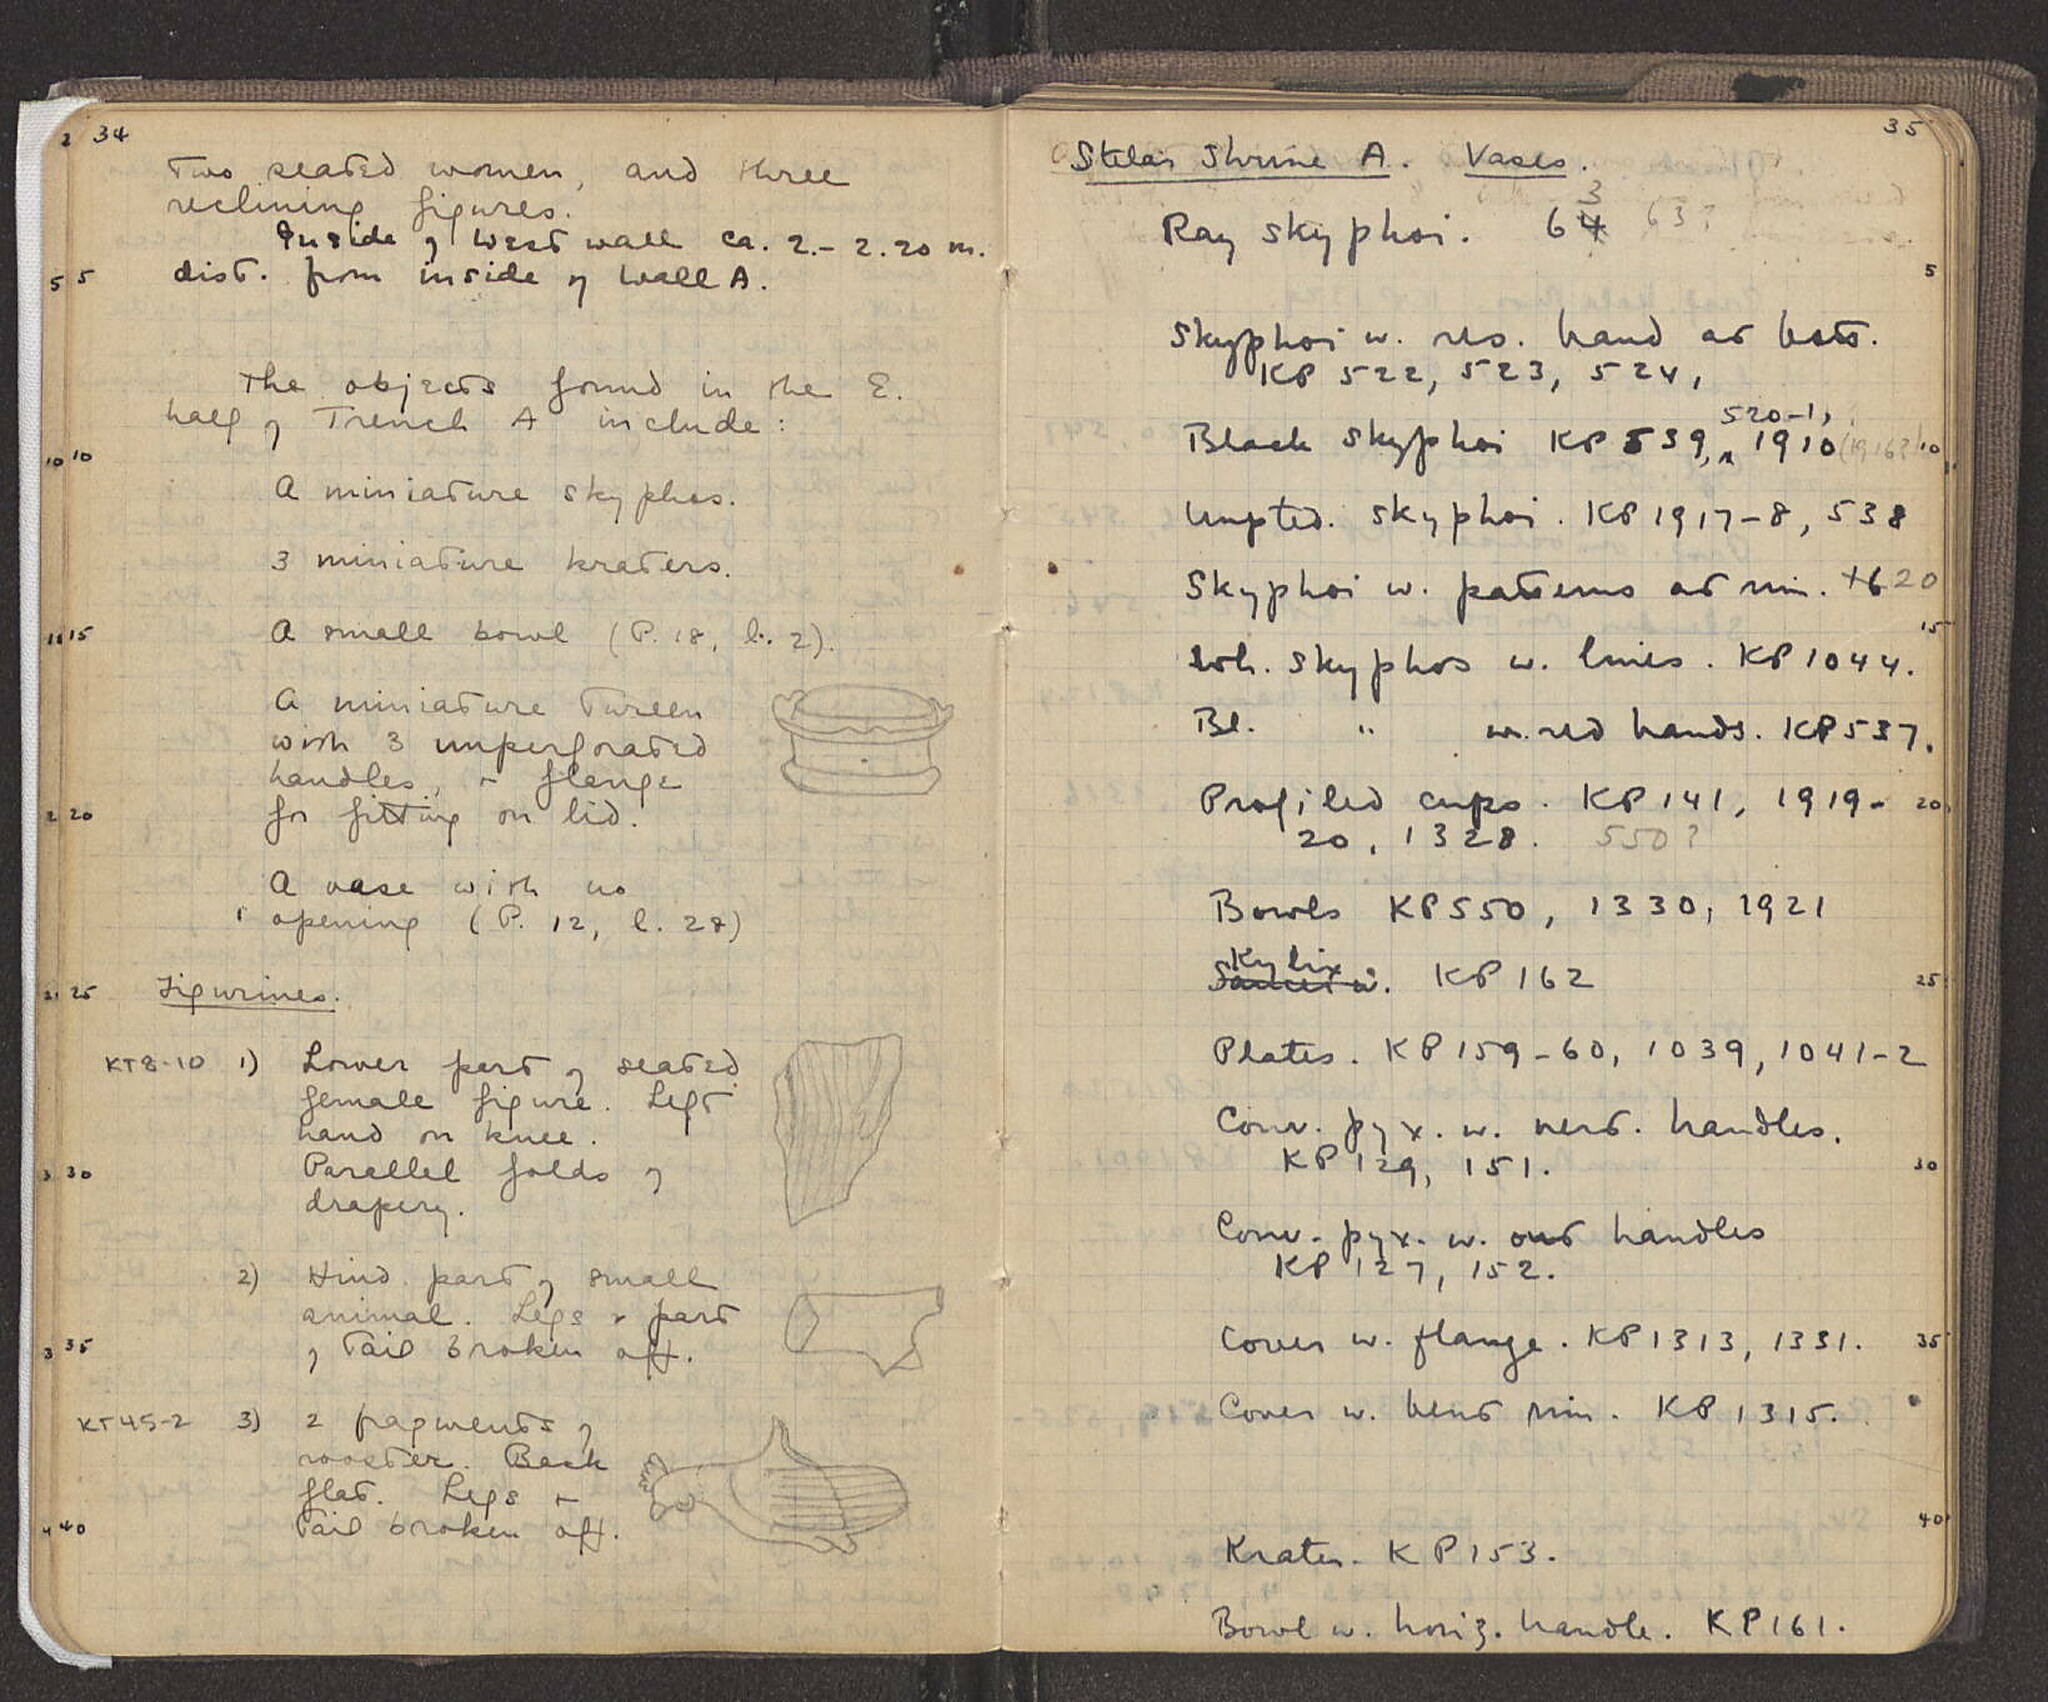 34
Two seated women, and three
reclining figures.
Inside of West wall ca. 2.- 2.20 m.
5 dist. from inside of Wall A.
The objects found in the E.
half of Trench A include:
10
A miniature skyphos.
3 miniature kraters.
15 A small bowl (P. 18, l. 2).
A miniature Tureen
with 3 unperforated
handles, + flange
20 for fitting on lid.
A vase with no
opening (P. 12, l. 28)
25 Figurines.
KT8-10 1) Lower part of seated
female figure. Left
hand on knee.
30 Parallel folds of
drapery.
2) Hind part of small
animal. Legs + part
35 of Tail broken off.
KT45-2 3) 2 fragments of
rooster. Back
flat. Legs +
40 Tail broken off.
35
Stelai Shrine A. Vases.
3
Ray skyphoi. 64 63?
5
Skyphoi w. res. band at bott.
KP 522, 523, 524,
520-1,
Black Skyphoi KP 539, ^ 1910 (1916?) 10
Unptd. Skyphoi. KP 1917-8, 538
Skyphoi w. patterns at rim. +6 20
15
Wh. Skyphos w. lines. KP 1044.
Bl. " w. red bands. KP 537.
Profiled cups. KP 141, 1919- 20
20, 1328. 550?
Bowls KP 550, 1330, 1921
Kylix
KP 162 25
Plates. KP 159-60, 1039, 1041-2
Conv. pyx. w. vert. handles.
KP 129, 151. 30
Conv. pyx. w. out handles
KP 127, 152.
Cover w. flange. KP 1313, 1331. 35
Cover w. bent rim. KP 1315.
40
Krater. KP 153.
Bowl w. horiz. handle. KP 161.